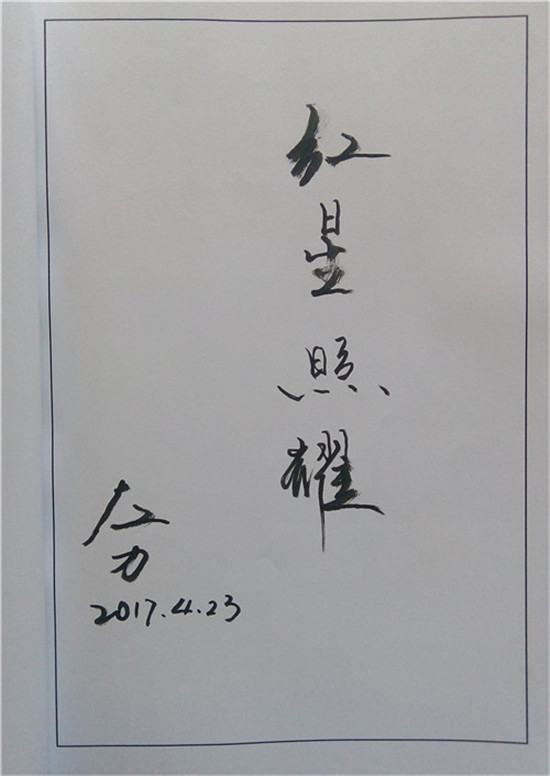 红星照耀
左力
2017.4.23